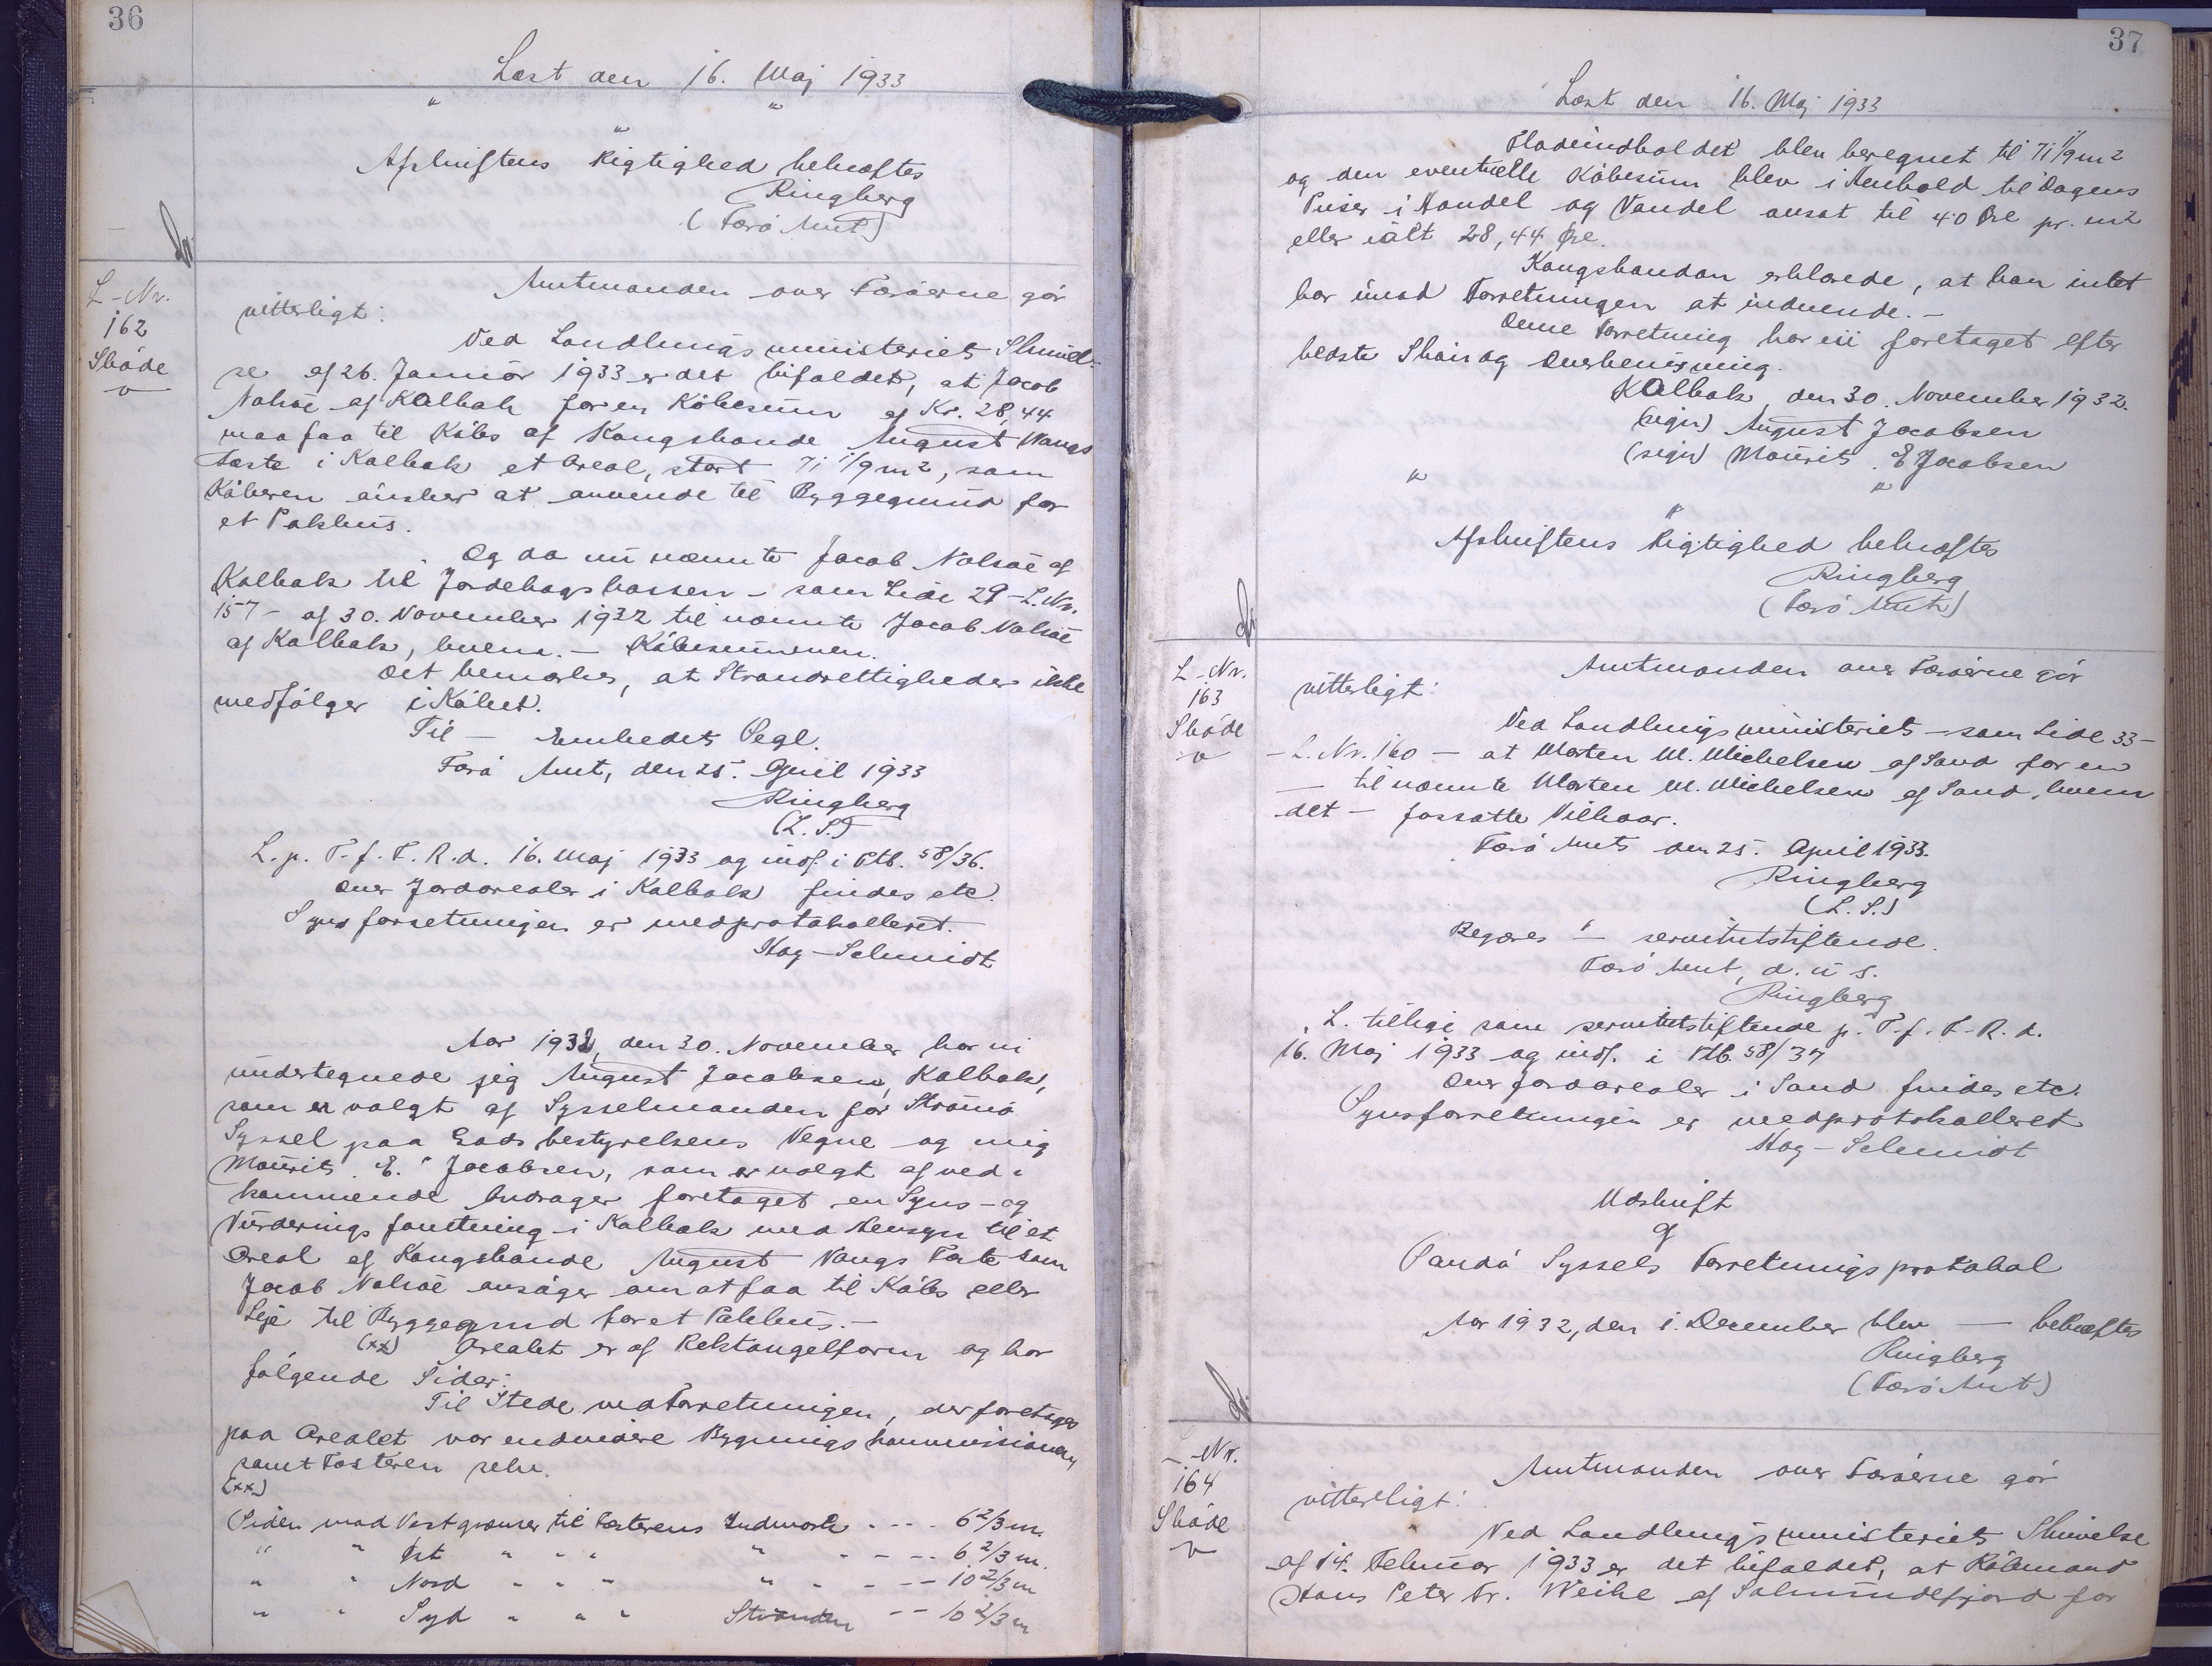 36
Læst den 16. Maj 1933
" "
"
Afskriftens Rigtighed bekræftes
Ringberg
(Færø Amt)
L-Nr.
162
Skøde
Amtmanden over Færøerne gør
vitterligt:
Ved Landbrugsministeriets Skrivel-
se af 26. Januar 1933 er det bifaldet, at Jacob
Nolsøe af Kalbak for en Købesum af Kr. 28,44
maa faa til Købs af Kongsbonde August Vangs
Fæste i Kalbak et Areal, stort 71 1/9 m2, som
Køberen ønsker at anvende til Byggegrund for
et Pakhus.
Og da nu nævnte Jacob Nolsøe af
Kalbak til Jordebogskassen - som Side 29 - L. Nr.
157 - af 30. November 1932 til nævnte Jacob Nolsøe
af Kalbak, hvem. - Købesummen.
Det bemærkes, at Strandrettigheder ikke
medfølger i Købet.
Til - Embedets Segl.
Færø Amt, den 25. April 1933
Ringberg
(L. S.)
L. p. T. f. F. R. d. 16. Maj 1933 og indf. i Ptb. 58/36.
Over Jordarealer i Kalbak findes etc.
Synsforretningen er medprotokolleret.
Høg-Schmidt
Aar 1932, den 30. November har vi
undertegnede jeg August Jacobsen, Kalbak,
som er valgt af Sysselmanden for Strømø
Syssel paa Godsbestyrelsens Vegne og mig
Maurits E. Jacobsen, som er valgt af ved-
kommende Andrager foretaget en Syns- og
Vurderingsforretning i Kalbak med Hensyn til et
Areal af Kongsbonde August Vangs Fæste som
Jacob Nolsøe ansøger om at faa til Købs eller
Leje til Byggegrund for et Pakhus. -
(xx) Arealet er af Rektangelform og har
følgende Sider:
Til Stede ved Forretningen, der foretages
paa Arealet var endvidere Bygningskommissionen
samt Fæsteren selv.
(xx)
Siden mod Vest grænser til Fæsterens Indmark - - - 6 2/3 m.
" " Øst " " " " - - - - 6 2/3 m.
" " Nord " " " " - - - - 10 2/3 m
" " Syd " " " Stranden - - 10 2/3 m
37
Læst den 16. Maj 1933
Fladeindholdet blev beregnet til 71 1/9 m2
og den eventuelle Købesum blev i Henhold til Dagens
Priser i Handel og Vandel ansat til 40 Øre pr. m2
eller ialt 28,44 Øre.
Kongsbonden erklærede, at han intet
har imod Forretningen at indvende. -
Denne Forretning har vi foretaget efter
bedste Skøn og Overbevisning.
Kalbak, den 30. November 1932.
(sign) August Jacobsen
(sign) Maurits E Jacobsen
" "
"
Afskriftens Rigtighed bekræftes
Ringberg
(Færø Amt)
L-Nr.
163
Skøde
Amtmanden over Færøerne gør
vitterligt:
Ved Landbrugsministeriets - som Side 33 -
- L. Nr. 160 - at Morten M. Michelsen af Sand for en
- til nævnte Morten M. Michelsen af Sand, hvem
det - forsatte Vilkaar.
Færø Amt, den 25. April 1933.
Ringberg
(L. S.)
Begæres " - servitutstiftende.
Færø Amt, d. u. s.
Ringberg
L. tillige som servitutstiftende p. T. f. F. R. d.
16. Maj 1933 og indf. i Ptb. 58/37
Over Jordarealer i Sand findes etc.
Synsforretningen er medprotokolleret
Høg-Schmidt
Udskrift
af
Sandø Syssels Forretningsprotokol
Aar 1932, den 1. December blev - bekræftes
Ringberg
(Færø Amt)
L-Nr.
164
Skøde
Amtmanden over Færøerne gør
vitterligt:
Ved Landbrugsministeriets Skrivelse
af 14. Februar 1933 er det bifaldet, at Købmand
Hans Peter Fr. Weihe af Solmundefjord for